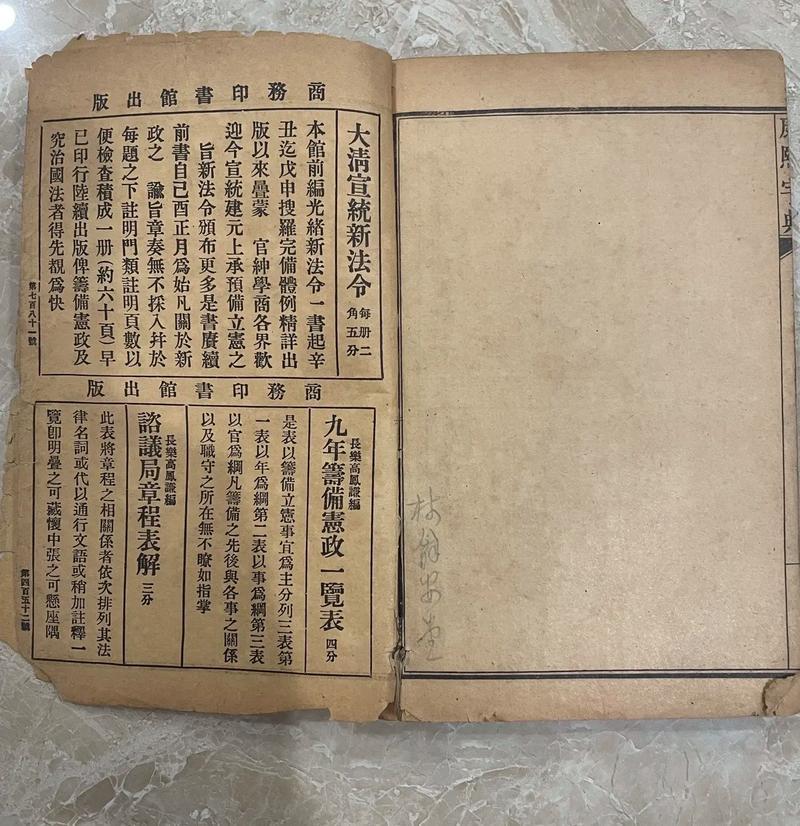 商務印書館出版
大淸宣統新法令
每册二
角五分
本館前編光緒新法令一書起辛
丑迄戊申搜羅完備體例精詳出
版以來疊蒙 官紳學商各界歡
迎今宣統建元上承預備立憲之
旨新法令頒布更多是書賡續
前書自己酉正月爲始凡關於新
政之 諭旨章奏無不採入幷於
每題之下註明門類註明頁數以
便檢查積成一册(約六十頁)早
已印行陸續出版俾籌備憲政及
究治國法者得先覩爲快
第七百八十一號
商務印書館出版
長樂高鳳謙編
九年籌備憲政一覽表
四分
是表以籌備立憲事宜爲主分列三表第
一表以年爲綱第二表以事爲綱第三表
以官爲綱凡籌備之先後與各事之關係
以及職守之所在無不瞭如指掌
長樂高鳳謙編
諮議局章程表解
三分
此表將章程之相關係者依次排列其法
律名詞或代以通行文語或稍加註釋一
覽卽明疊之可藏懷中張之可懸座隅
第四百五十二號
康熙字典